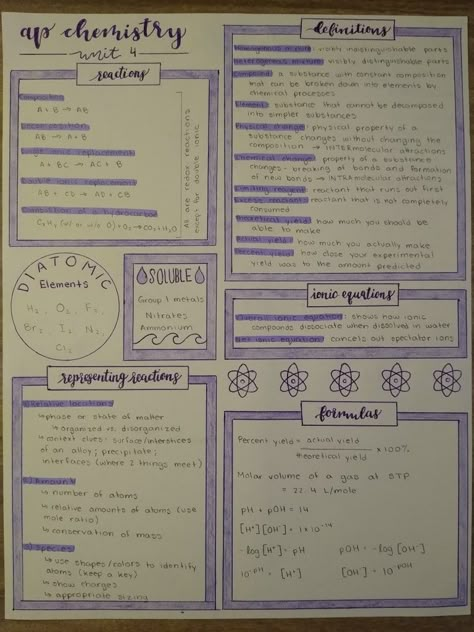 ap chemistry
unit 4
reactions
Composition
A + B → AB
Decomposition
AB → A + B
Single ionic replacement
A + BC → AC + B
Double ionic replacement
AB + CD → AD + CB
Combustion of a hydrocarbon
CₓHᵧ (w/ or w/o O) + O₂ → CO₂ + H₂O
All are redox reactions
except for double ionic
DIATOMIC
Elements
H₂, O₂, F₂,
Br₂, I₂, N₂,
Cl₂
SOLUBLE
Group 1 metals
Nitrates
Ammonium
representing reactions
1) Relative locations
↳ phase or state of matter
↳ organized vs. disorganized
↳ context clues: surface/interstices
of an alloy; precipitate;
interfaces (where 2 things meet)
2) Amount
↳ number of atoms
↳ relative amounts of atoms (use
mole ratio)
↳ conservation of mass
3) Species
↳ use shapes/colors to identify
atoms (keep a key)
↳ show charges
↳ appropriate sizing
definitions
Homogenous mixture: visibly indistinguishable parts
Heterogenous mixture: visibly distinguishable parts
Compound: a substance with constant composition
that can be broken down into elements by
chemical processes
Element: substance that cannot be decomposed
into simpler substances
Physical change: physical property of a
substance changes without changing the
composition → INTERmolecular attractions
Chemical change: property of a substance
changes - breaking of bonds and formation
of new bonds → INTRAmolecular attractions
Limiting reagent: reactant that runs out first
Excess reactant: reactant that is not completely
consumed
Theoretical yield: how much you should be
able to make
Actual yield: how much you actually make
Percent yield: how close your experimental
yield was to the amount predicted
ionic equations
Overall ionic equation: shows how ionic
compounds dissociate when dissolved in water
Net ionic equation: cancels out spectator ions
formulas
Percent yield = actual yield
theoretical yield × 100%
Molar volume of a gas at STP
= 22.4 L/mole
pH + pOH = 14
[H⁺][OH⁻] = 1×10⁻¹⁴
-log[H⁺] = pH pOH = -log[OH⁻]
10⁻ᵖᴴ = [H⁺] [OH⁻] = 10⁻ᵖᴼᴴ